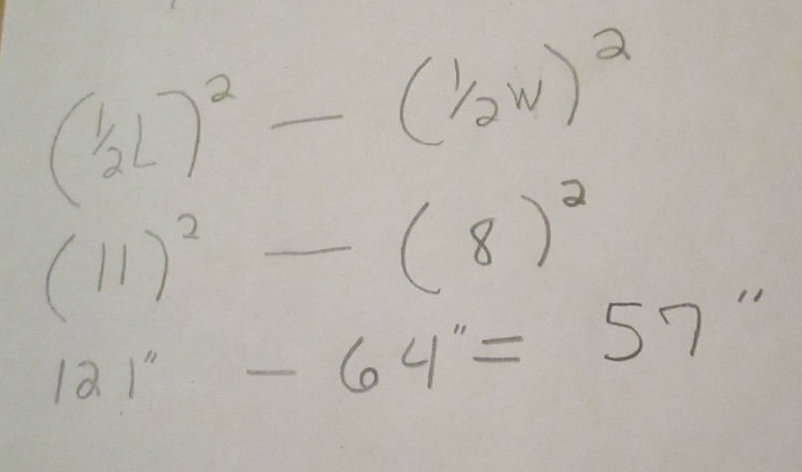 (½L)² — (½W)²
(11)² — (8)²
121" — 64" = 57"